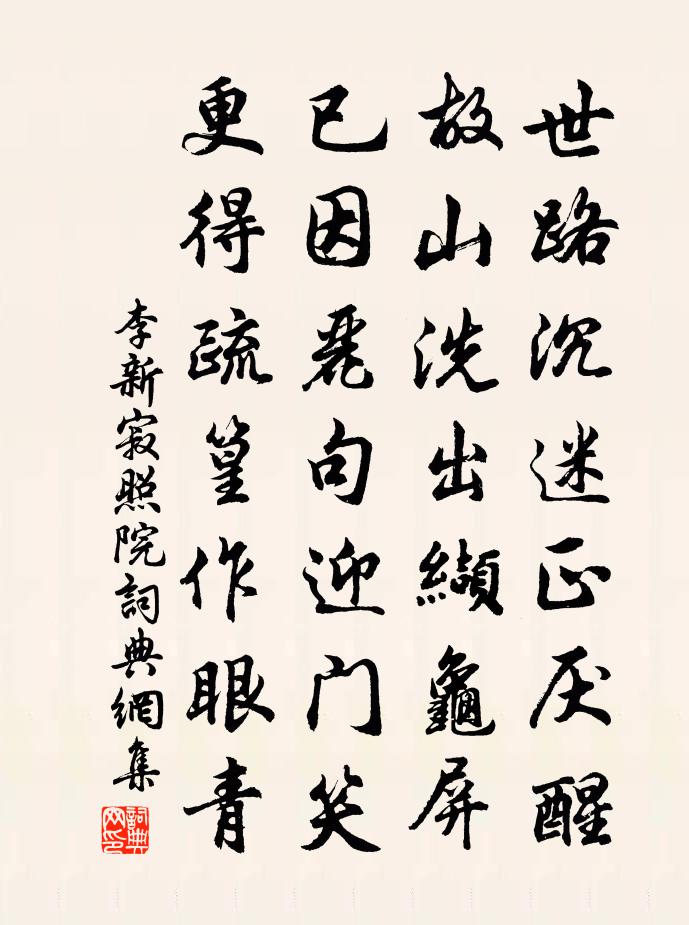 世路沉迷正厌醒
故山洗出纈龜屏
已因麗句迎门笑
更得疏篁作眼青
李新寂照院詞典網集
詞典網印